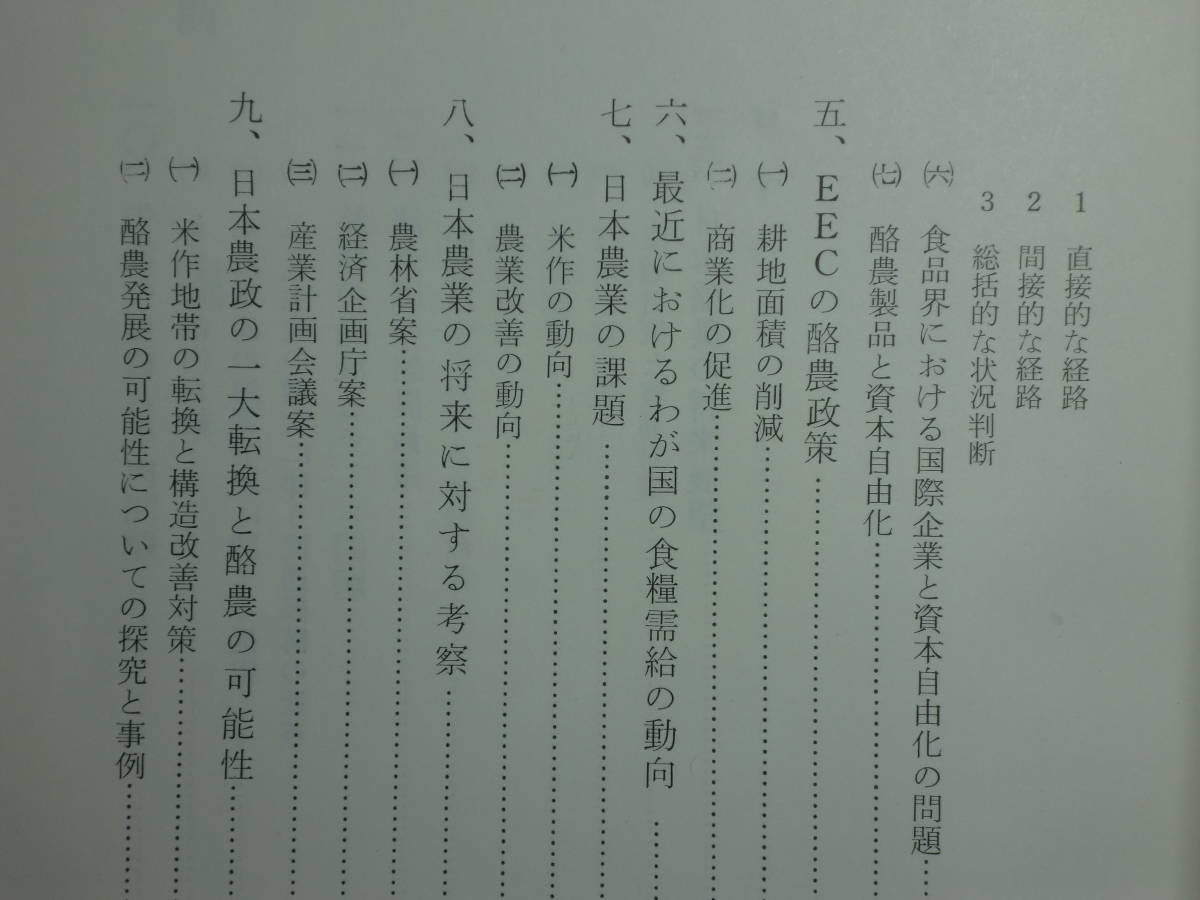 1 直接的な経路
2 間接的な経路
3 総括的な状況判断
㈥ 食品界における国際企業と資本自由化の問題……
㈦ 酪農製品と資本自由化……………………
五、EECの酪農政策……………………
㈠ 耕地面積の削減……………………
㈡ 商業化の促進……………………
六、最近におけるわが国の食糧需給の動向……
七、日本農業の課題……………………
㈠ 米作の動向……………………
㈡ 農業改善の動向……………………
八、日本農業の将来に対する考察……………
㈠ 農林省案……………………
㈡ 経済企画庁案……………………
㈢ 産業計画会議案……………………
九、日本農政の一大転換と酪農の可能性………
㈠ 米作地帯の転換と構造改善対策……………
㈡ 酪農発展の可能性についての探究と事例………